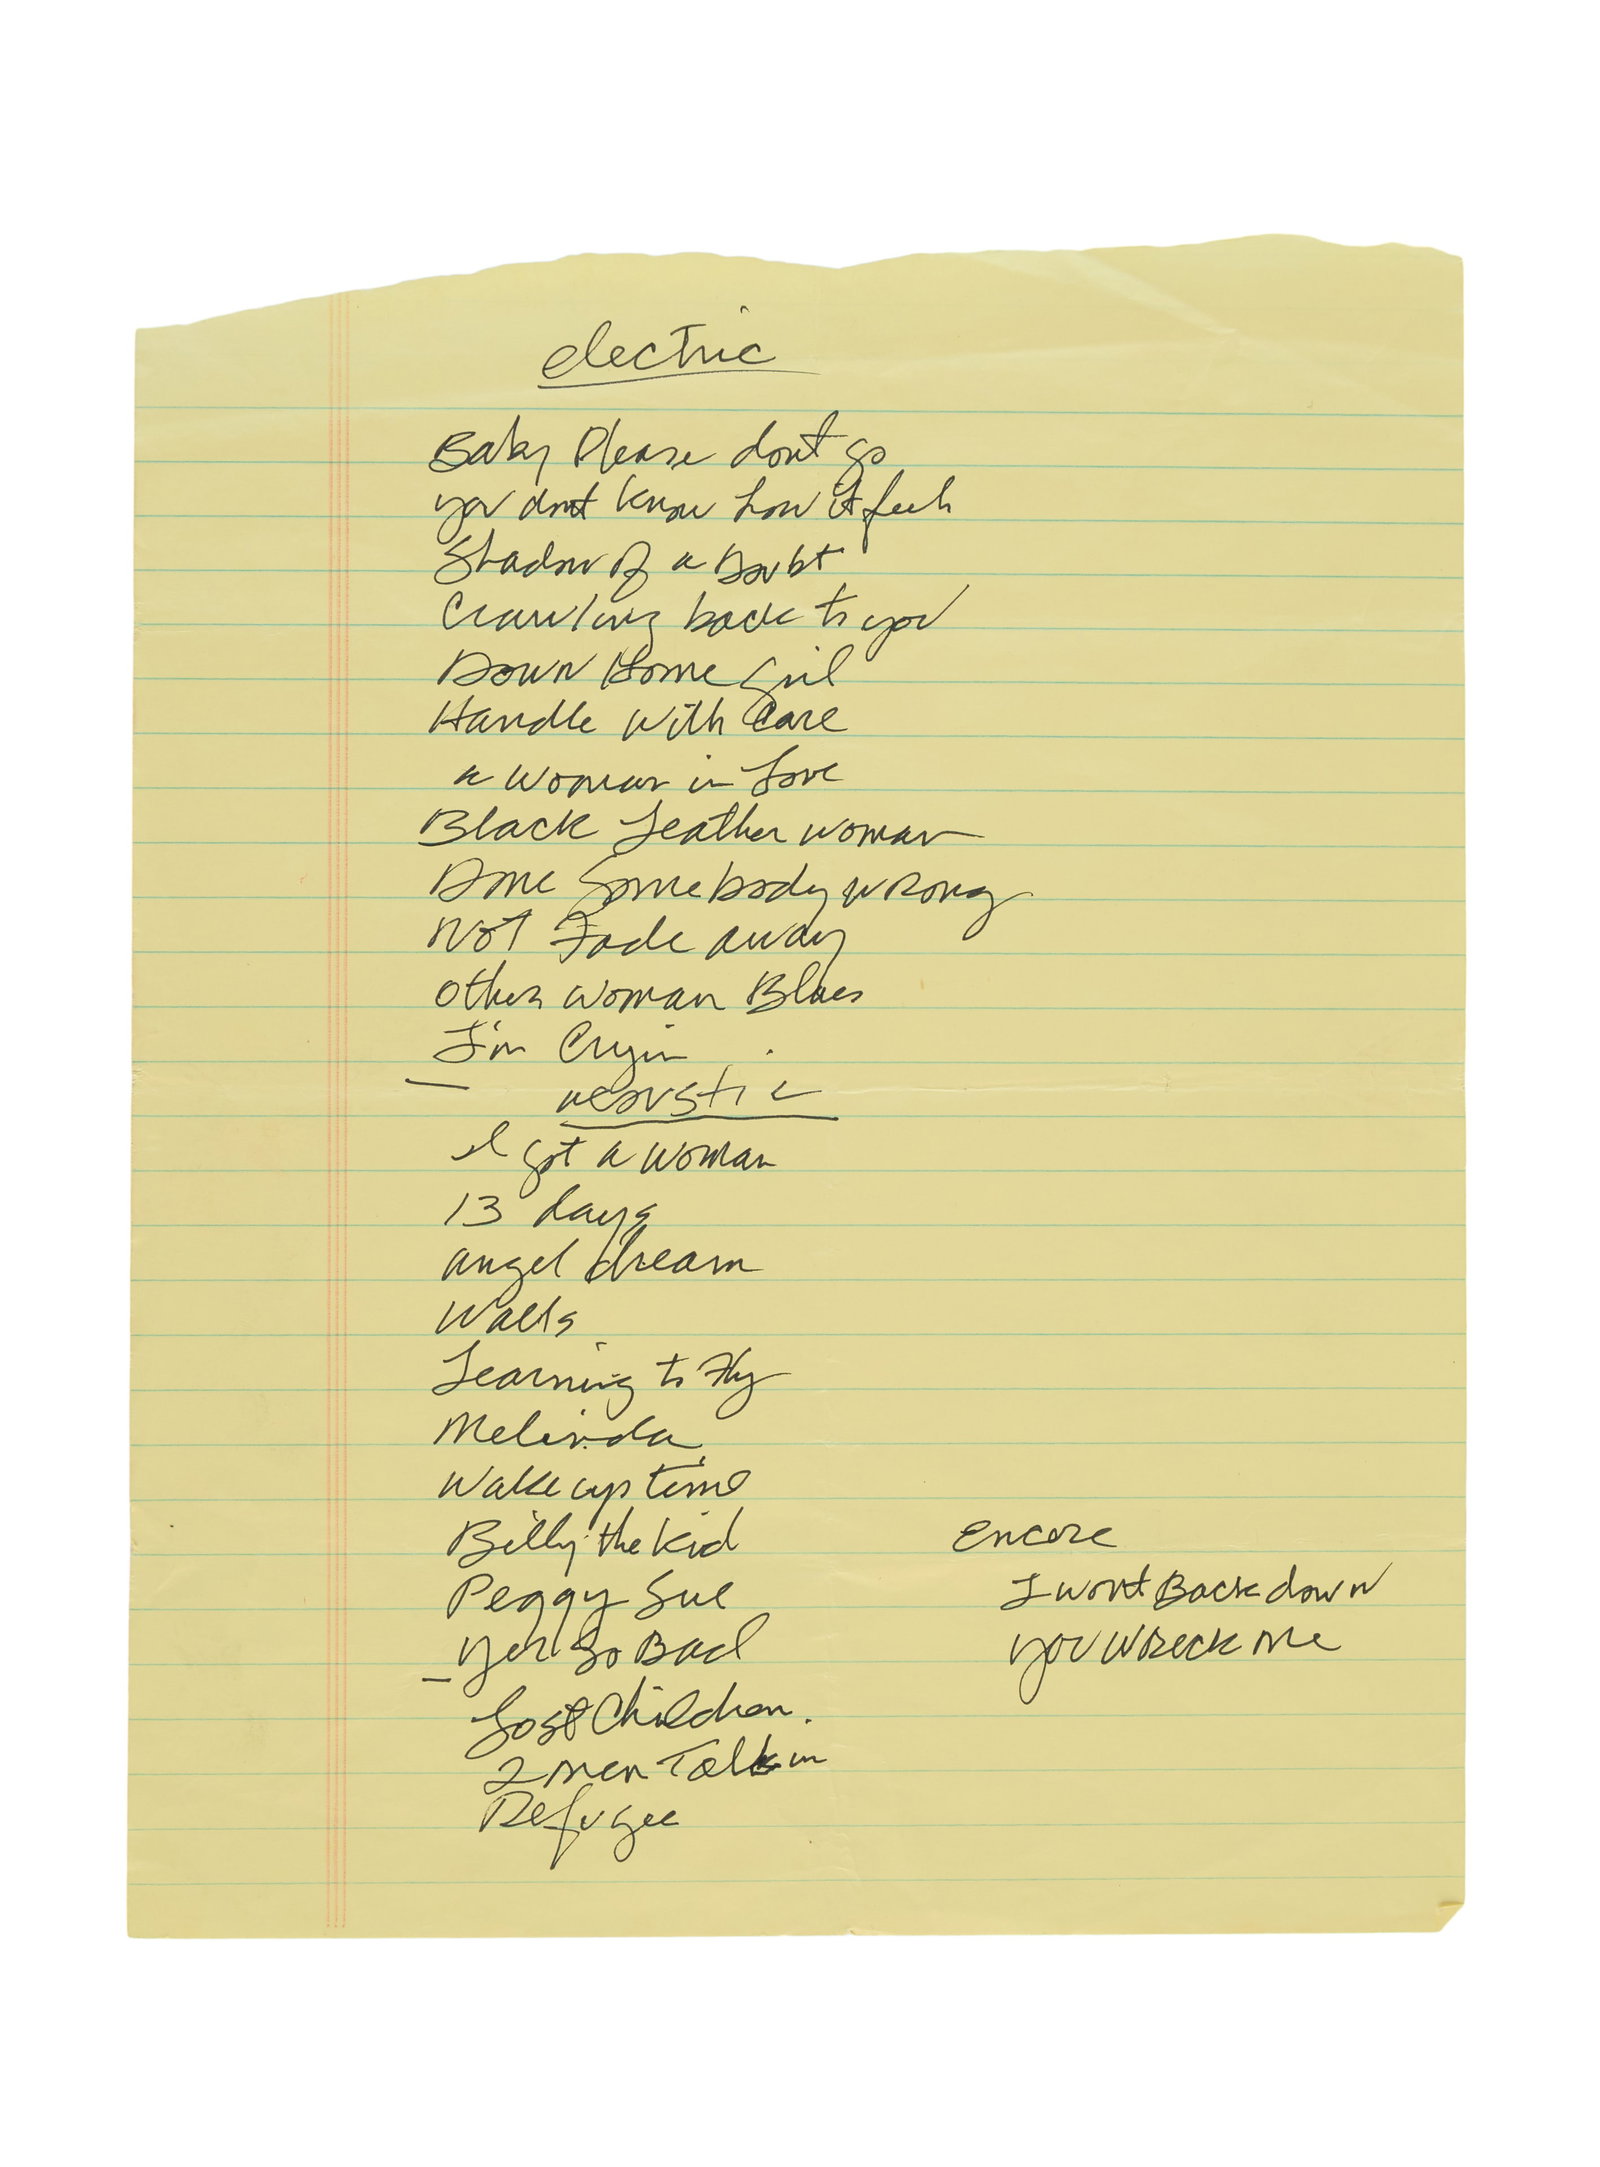 electric
Baby Please dont go
you dont know how it feels
Shadow of a Doubt
Crawling back to you
Down Home Girl
Handle with Care
a woman in Love
Black Leather woman
Done Somebody wrong
Not Fade away
other woman Blues
I'm Cryin
acoustic
I got a woman
13 days
angel dream
Walls
Learning to Fly
Melinda
Wake up time
Billy the Kid
Peggy Sue
Yer So Bad
Lost Children.
2 men Talkin
Refugee
encore
I wont Back down
you wreck me